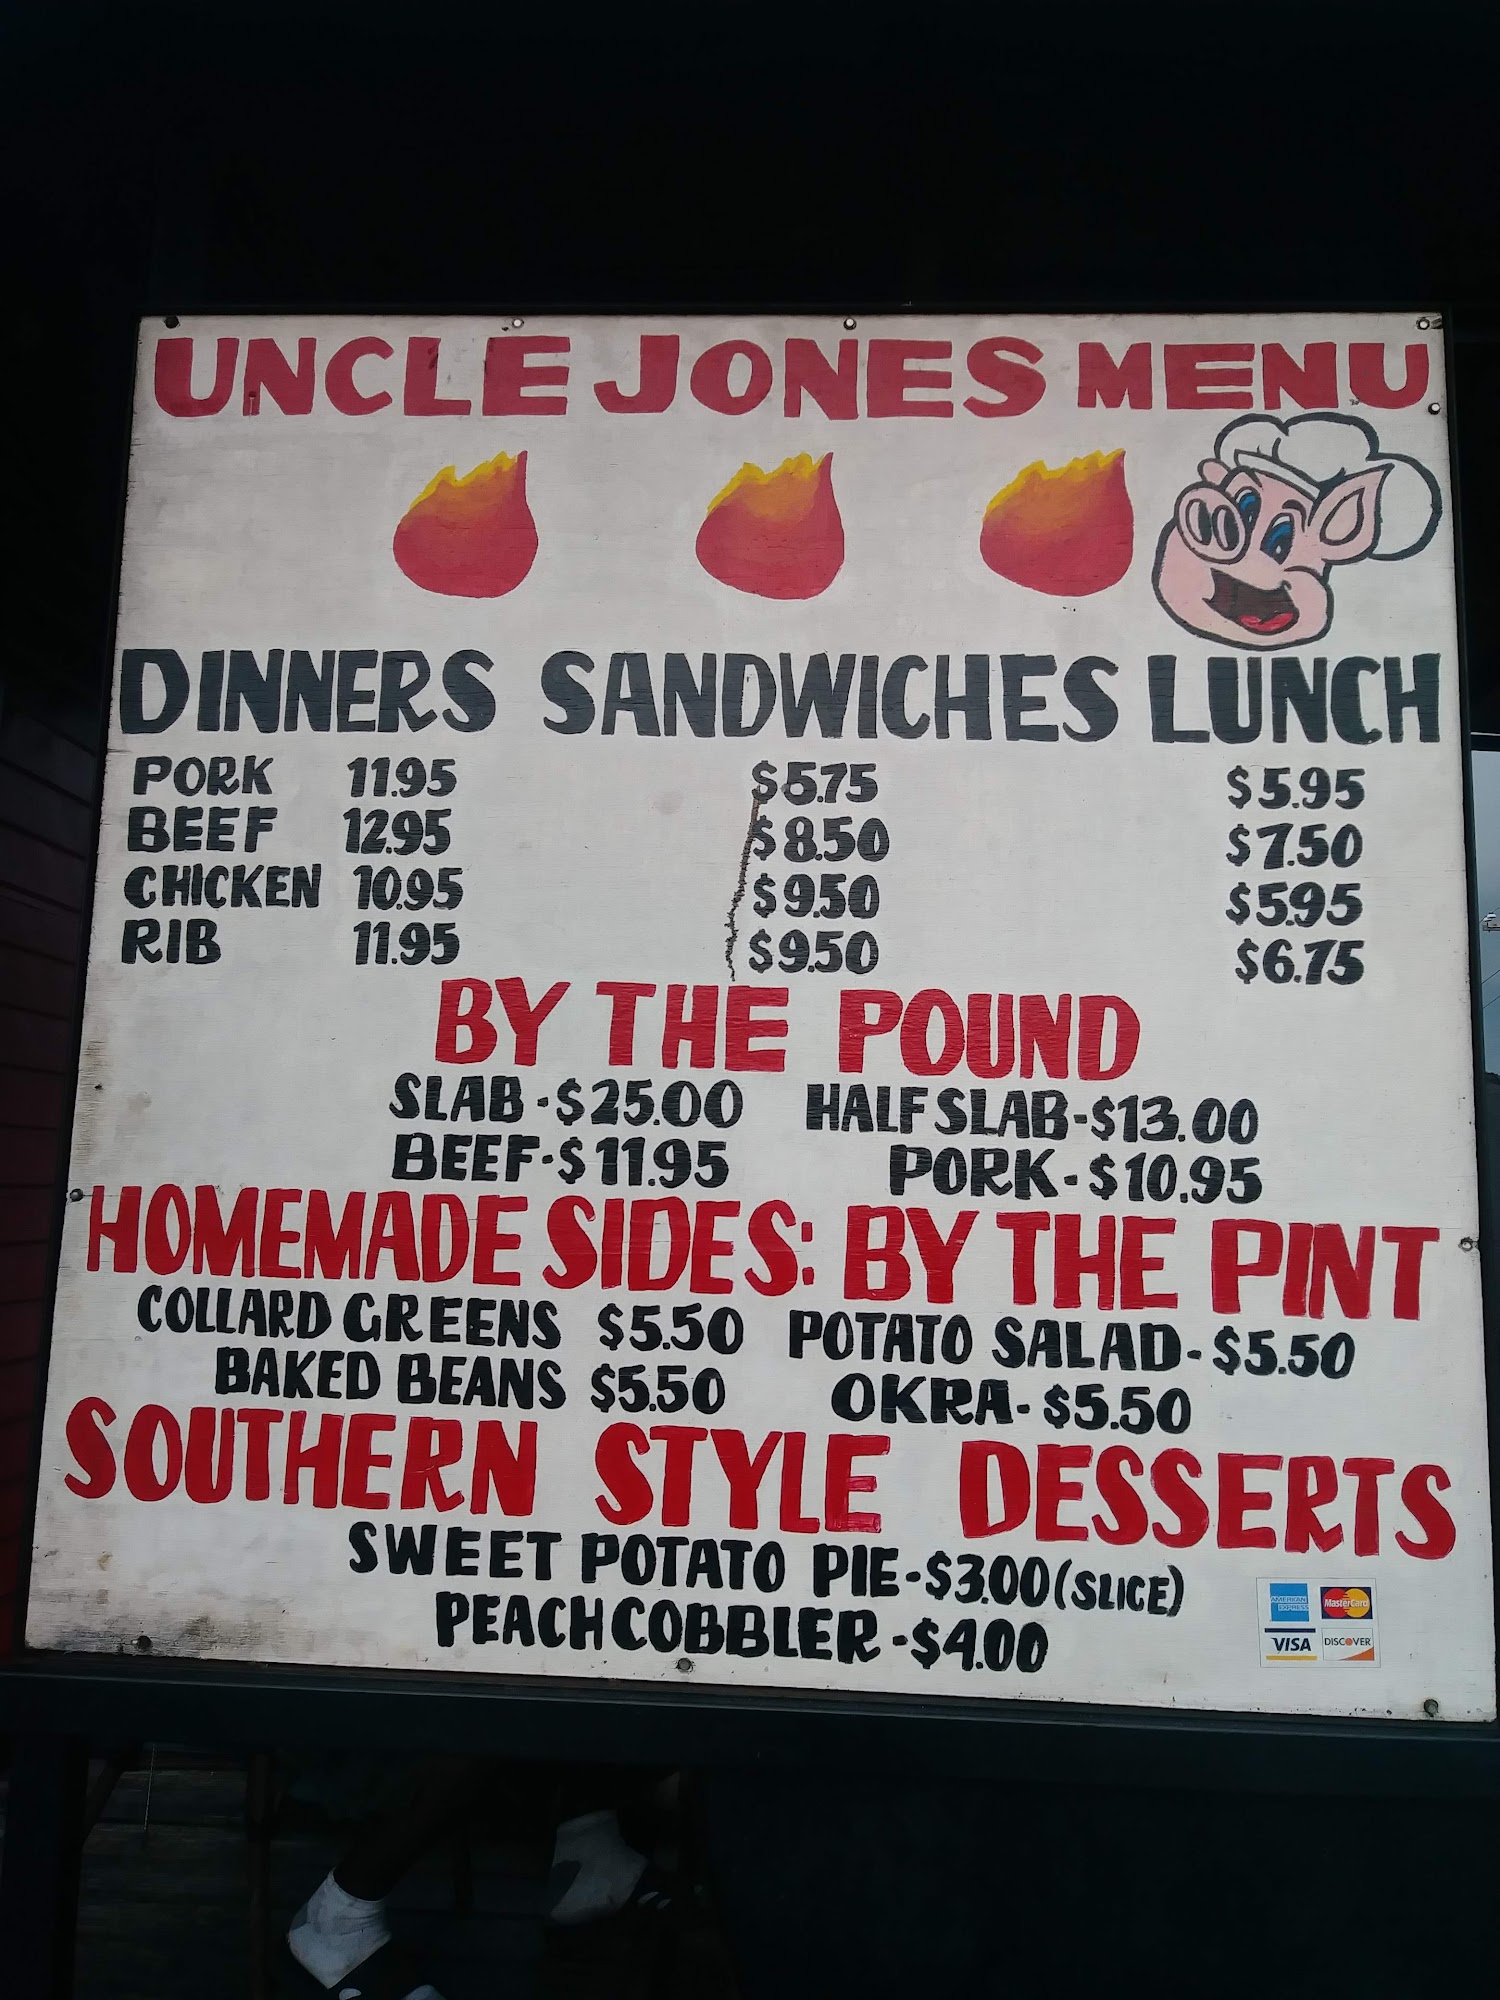 UNCLE JONES MENU
DINNERS SANDWICHES LUNCH
PORK 11.95 $5.75 $5.95
BEEF 12.95 $8.50 $7.50
CHICKEN 10.95 $9.50 $5.95
RIB 11.95 $9.50 $6.75
BY THE POUND
SLAB-$25.00 HALF SLAB-$13.00
BEEF-$11.95 PORK-$10.95
HOMEMADE SIDES: BY THE PINT
COLLARD GREENS $5.50 POTATO SALAD-$5.50
BAKED BEANS $5.50 OKRA-$5.50
SOUTHERN STYLE DESSERTS
SWEET POTATO PIE-$3.00 (SLICE)
PEACH COBBLER-$4.00
AMERICAN EXPRESS MasterCard
VISA DISCOVER